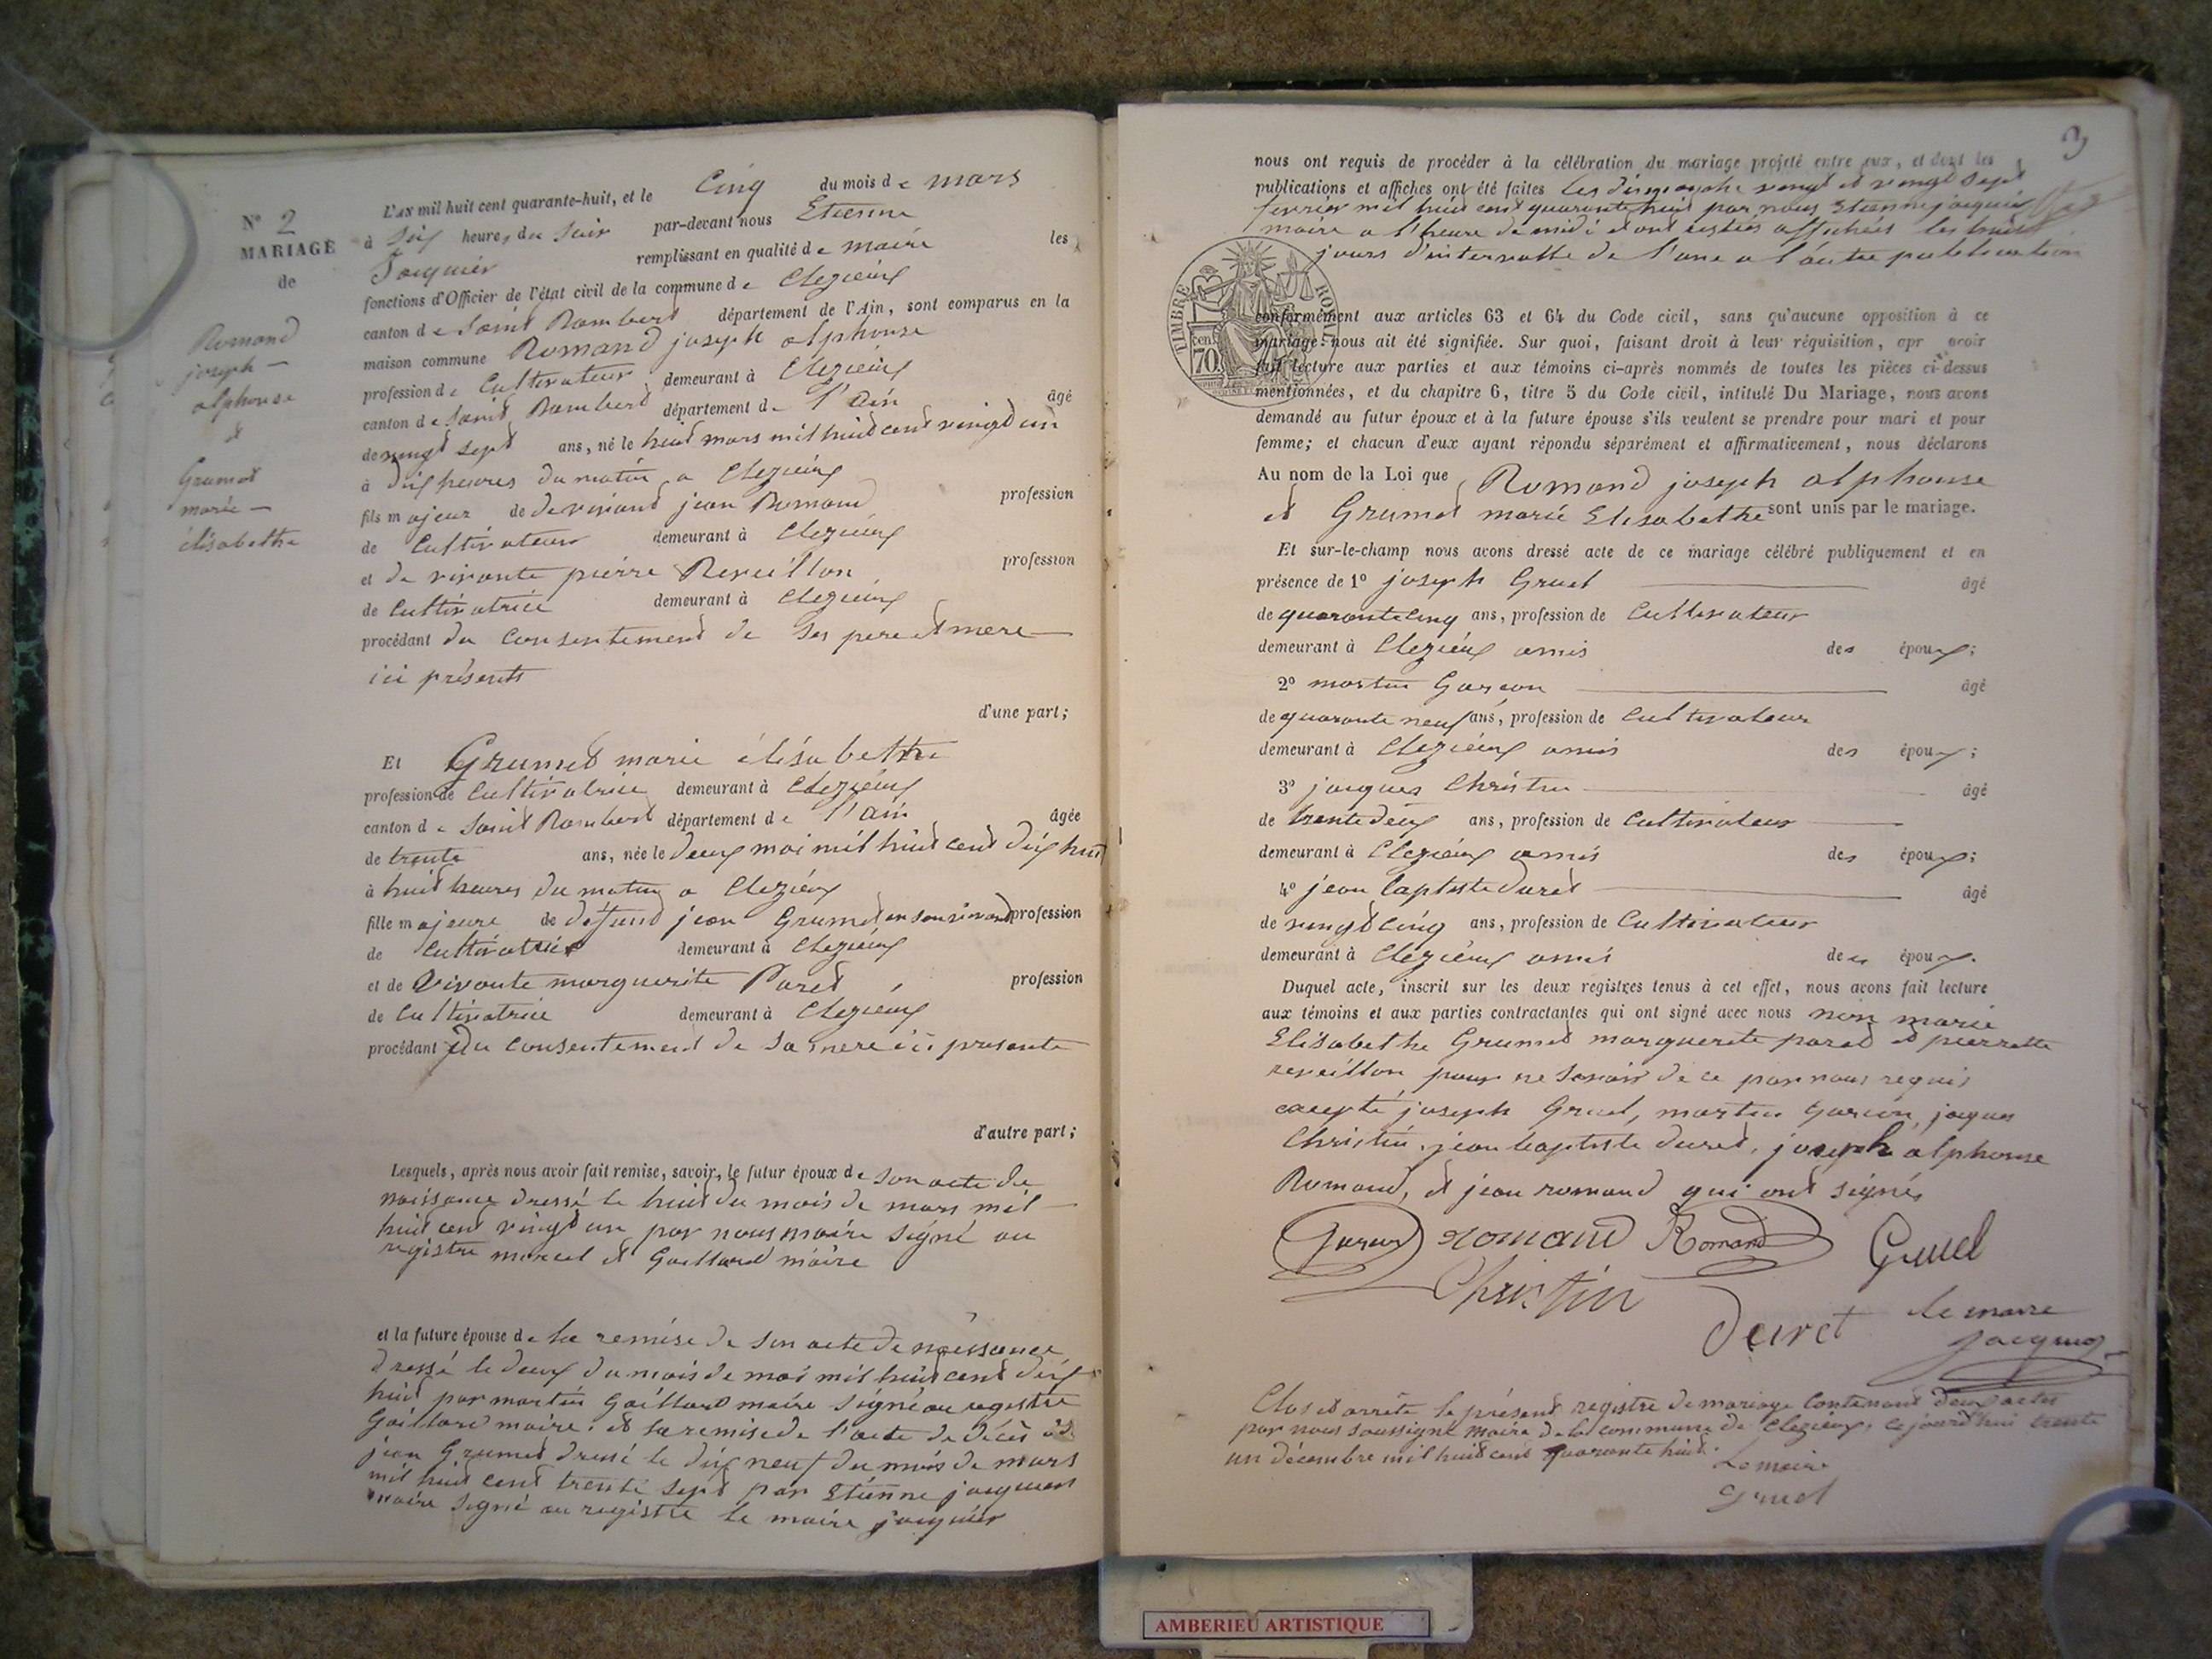 N° 2
MARIAGE
de
Romand
joseph —
alphonse
et
Grumet
marie —
élisabethe
L'AN mil huit cent quarante-huit, et le Cinq du mois de mars
à Six heures du Soir par-devant nous Etienne
Jacquier remplissant en qualité de maire les
fonctions d'Officier de l'état civil de la commune de Clezieux
canton de Saint Rambert département de l'Ain, sont comparus en la
maison commune Romand joseph alphonse
profession de Cultivateur demeurant à Clezieux
canton de Saint Rambert département de l'Ain âgé
de vingt sept ans, né le huit mars mil huit cent vingt un
à dix heures du matin a Clezieux
fils majeur de de vivant jean Romand profession
de Cultivateur demeurant à Clezieux
et de vivante pierre Reveillon profession
de Cultivatrice demeurant à Clezieux
procédant du Consentement de Ses pere et mere —
ici présents
d'une part;
Et Grumet marie élisabethe
profession de Cultivatrice demeurant à Clezieux
canton de Saint Rambert département de l'Ain âgée
de trente ans, née le deux mai mil huit cent dix huit
à huit heures du matin a Clezieux
fille majeure de défunt jean Grumet en son vivant profession
de Cultivatrice demeurant à Clezieux
et de vivante marguerite Paret profession
de Cultivatrice demeurant à Clezieux
procédant du consentement de Sa mere ici presente
d'autre part;
Lesquels, après nous avoir fait remise, savoir, le futur époux de Son acte de
naissance dressé le huit du mois de mars mil —
huit cent vingt un par nous maire Signé au
registre marcel et Gaillard maire
et la future épouse de la remise de Son acte de naissance
dressé le deux du mois de mai mil huit cent dix
huit par martin Gaillard maire Signé au registre
Gaillard maire. et la remise de l'acte de décès de
jean Grumet dressé le dix neuf du mois de mars
mil huit cent trente Sept par Etienne jacquier
maire Signé au registre le maire jacquier
3
nous ont requis de procéder à la célébration du mariage projeté entre eux, et dont les
publications et affiches ont été faites les dimanche vingt et vingt Sept
fevrier mil huit cent quarante huit par nous Etienne jacquier
maire a l'heure de midi et ont restées affichées les huit
jours d'intervalle de l'une a l'autre publication
TIMBRE ROYAL
70 cent.
conformément aux articles 63 et 64 du Code civil, sans qu'aucune opposition à ce
mariage nous ait été signifiée. Sur quoi, faisant droit à leur réquisition, apr avoir
fait lecture aux parties et aux témoins ci-après nommés de toutes les pièces ci-dessus
mentionnées, et du chapitre 6, titre 5 du Code civil, intitulé Du Mariage, nous avons
demandé au futur époux et à la future épouse s'ils veulent se prendre pour mari et pour
femme; et chacun d'eux ayant répondu séparément et affirmativement, nous déclarons
Au nom de la Loi que Romand joseph alphonse
et Grumet marie Elisabethe sont unis par le mariage.
Et sur-le-champ nous avons dressé acte de ce mariage célébré publiquement et en
présence de 1° joseph Gruel — âgé
de quarante cinq ans, profession de Cultivateur
demeurant à Clezieux amis des époux;
2° martin Garçon — âgé
de quarante neuf ans, profession de Cultivateur
demeurant à Clezieux amis des époux;
3° jacques Christin — âgé
de trente deux ans, profession de Cultivateur —
demeurant à Clezieux amis des époux;
4° jean baptiste duret — âgé
de vingt cinq ans, profession de Cultivateur
demeurant à Clezieux amis des époux.
Duquel acte, inscrit sur les deux registres tenus à cet effet, nous avons fait lecture
aux témoins et aux parties contractantes qui ont signé avec nous non marie
Elisabethe Grumet marguerite paret et pierrette
reveillon pour ne Savoir de ce par nous requis
excepté joseph Gruel, martin Garcon, jacques
Christin, jean baptiste duret, joseph alphonse
Romand, et jean romand qui ont signés
romand Romand Gruel
Christin
Duret le maire
jacquier
Clos et arrêté le présent registre de mariage Contenant deux actes
par nous soussigné maire de la commune de Clezieux, ce jourd'hui trente
un décembre mil huit cent quarante huit. Le maire
Gruel
AMBERIEU ARTISTIQUE